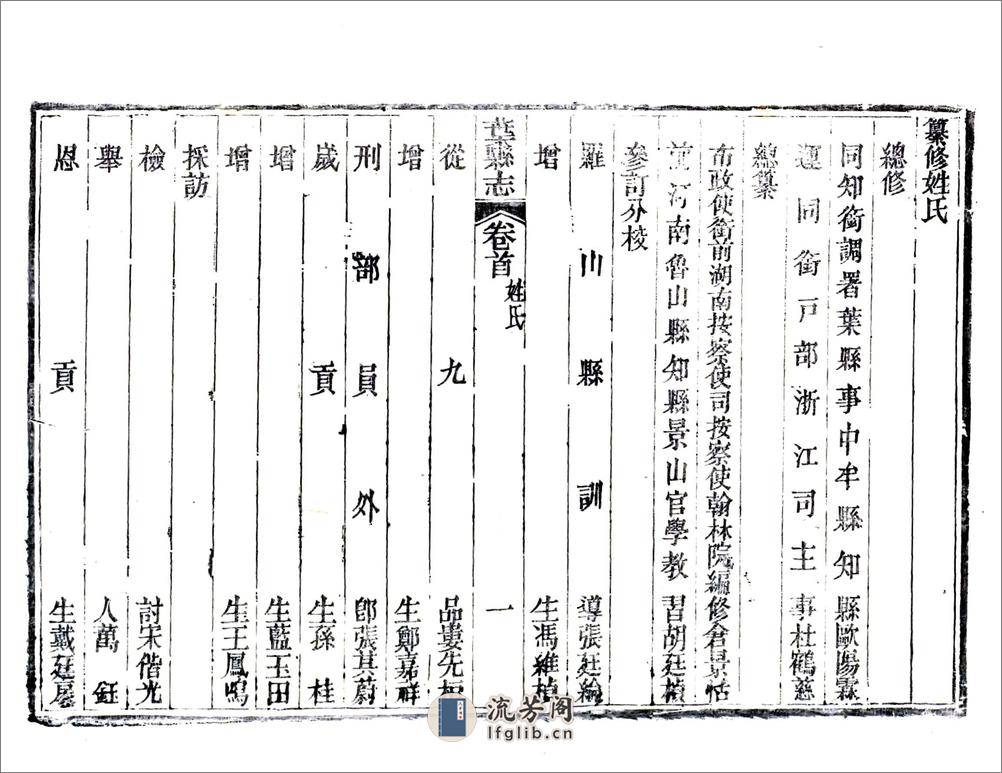 纂修姓氏
總修
同知銜調署葉縣事中牟縣知縣歐陽霖
運同銜戸部浙江司主事杜鶴慈
總纂
布政使銜前湖南按察使司按察使翰林院編修倉景恬
前河南魯山縣知縣景山官學教習胡廷楨
參訂分校
羅山縣訓導張廷綸
增生馮維楨
葉縣志
卷首
姓氏
一
從九品婁先
增生鄭嘉祥
刑部員外郎張其蔚
歲貢生孫桂
增生藍玉田
增生王鳳鳴
採訪
檢討宋偕光
舉人萬鈺
恩貢生戴廷
流芳阁
lfglib.cn